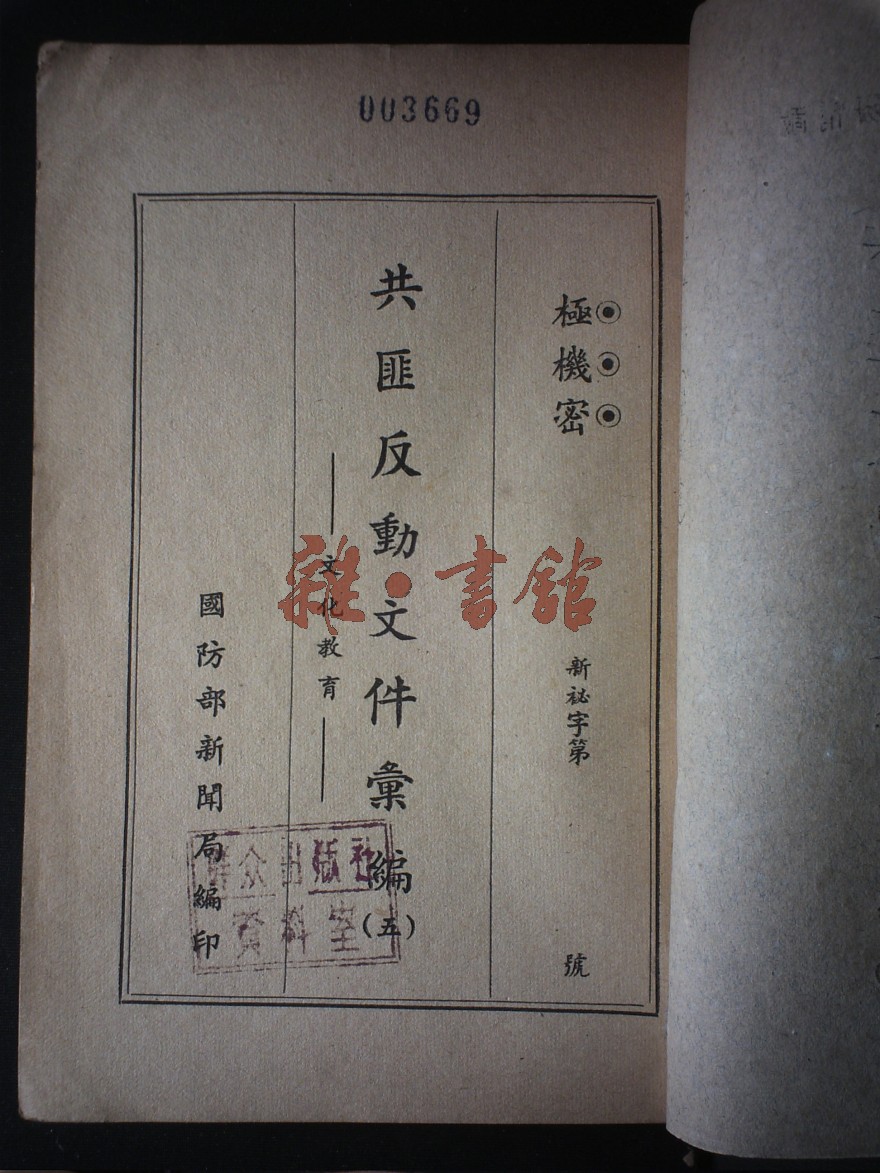 003669
極機密
新祕字第 號
共匪反動文件彙編(五)
——文化教育——
國防部新聞局編印
群众出版社
資料室
雜·書館